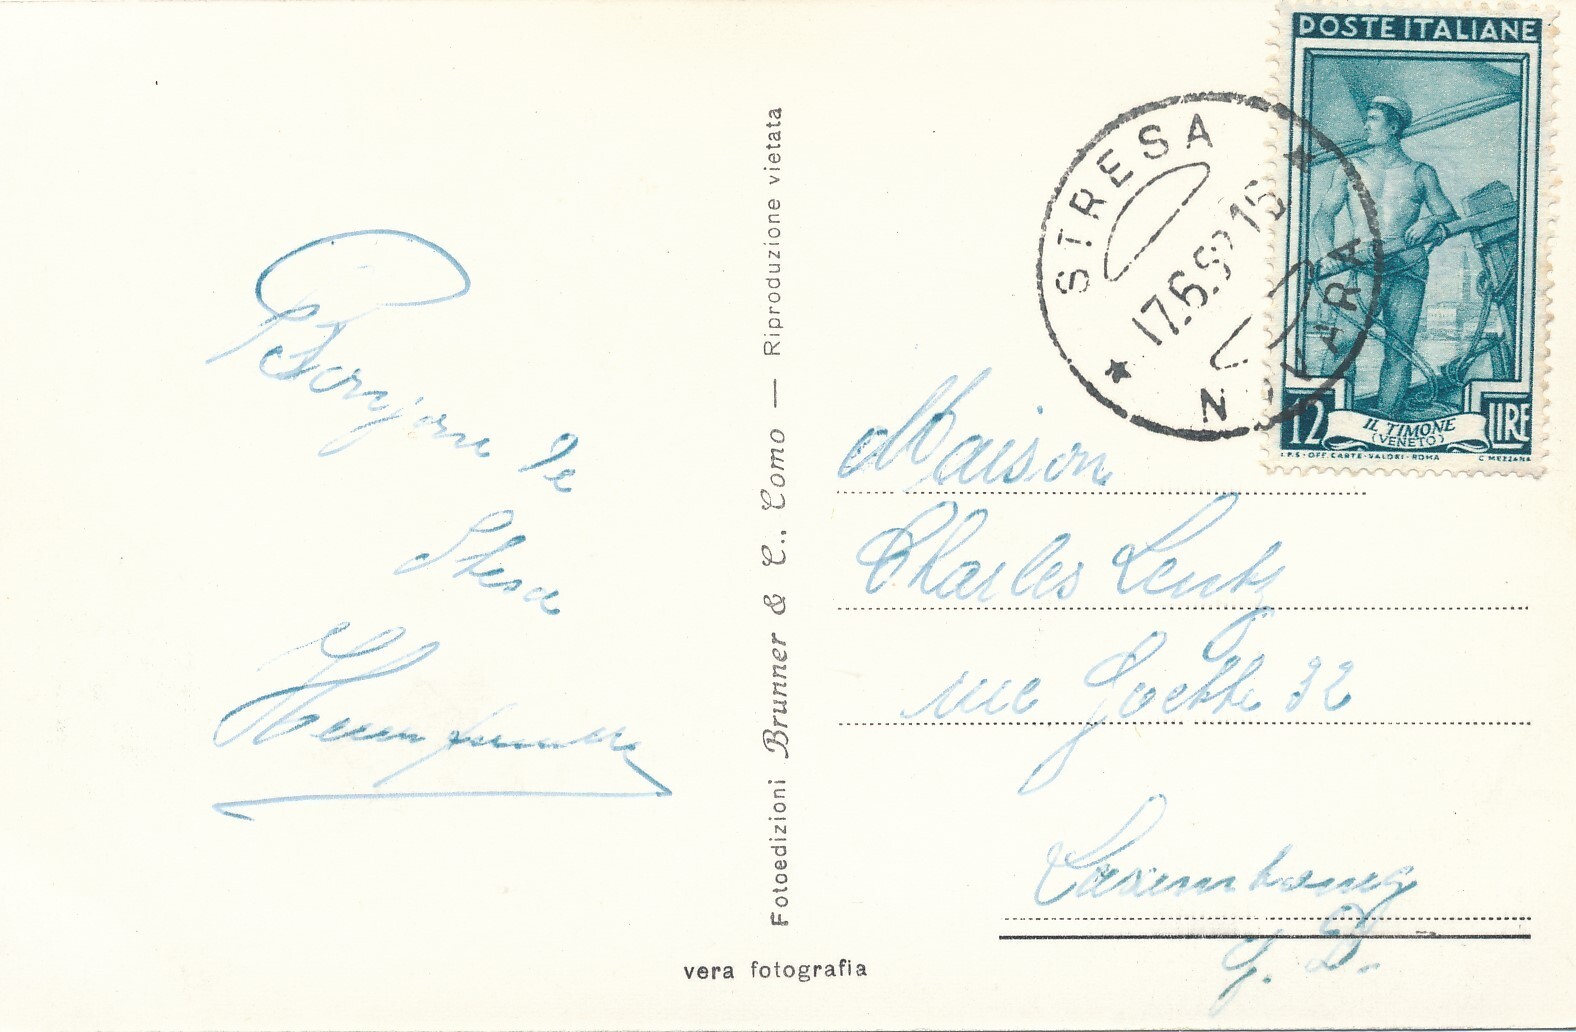 Bonjour de
Stresa
Fotoedizioni Brunner & C., Como — Riproduzione vietata
vera fotografia
POSTE ITALIANE
12 LIRE
IL TIMONE
(VENETO)
I.P.S-OFF. CARTE-VALORI-ROMA C MEZZANA
STRESA
17.6.5
NOVARA
Maison
Charles Lentz
rue Goethe 32
Luxembourg
G. D.